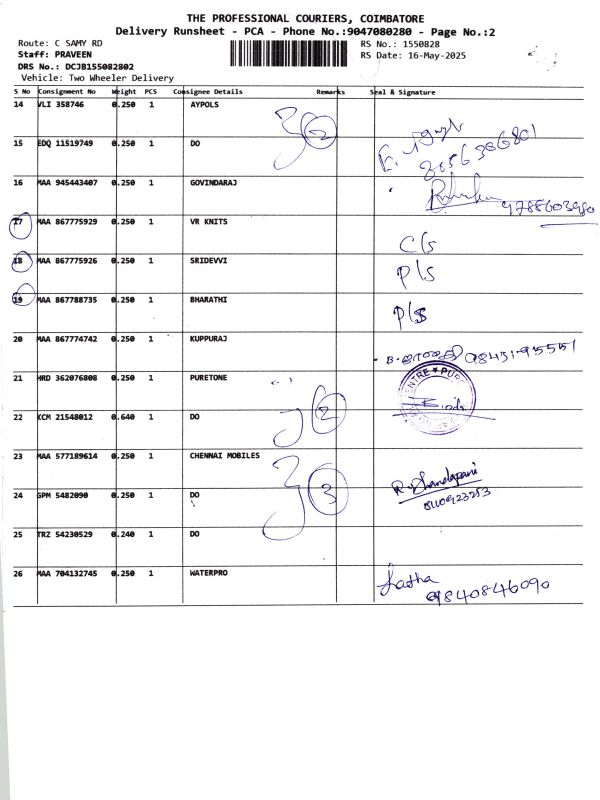 THE PROFESSIONAL COURIERS, COIMBATORE
Delivery Runsheet - PCA - Phone No.:9047080280 - Page No.:2
Route: C SAMY RD
RS No.: 1550828
Staff: PRAVEEN
RS Date: 16-May-2025
DRS No.: DCJB155082802
Vehicle: Two Wheeler Delivery
S No Consignment No Weight PCS Consignee Details Remarks Seal & Signature
14 VLI 358746 0.250 1 AYPOLS
2
15 EDQ 11519749 0.250 1 DO
16 MAA 945443407 0.250 1 GOVINDARAJ
9788603980
17 MAA 867775929 0.250 1 VR KNITS
C/s
18 MAA 867775926 0.250 1 SRIDEVVI
P/s
19 MAA 867788735 0.250 1 BHARATHI
P/s
20 MAA 867774742 0.250 1 KUPPURAJ
21 HRD 362076808 0.250 1 PURETONE
22 KCM 21548012 0.640 1 DO
2
23 MAA 577189614 0.250 1 CHENNAI MOBILES
24 GPM 5482090 0.250 1 DO
3
25 TRZ 54230529 0.240 1 DO
26 MAA 704132745 0.250 1 WATERPRO
Latha
9840846090